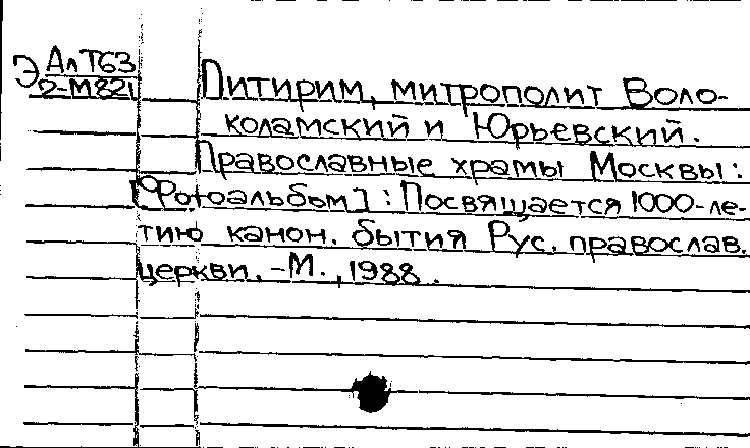 Э АлТ63
2-М821
Питирим, митрополит Воло-
коламский и Юрьевский.
Православные храмы Москвы:
[Фотоальбом]: Посвящается 1000-ле-
тию канон. бытия Рус. православ.
церкви. -М., 1988.